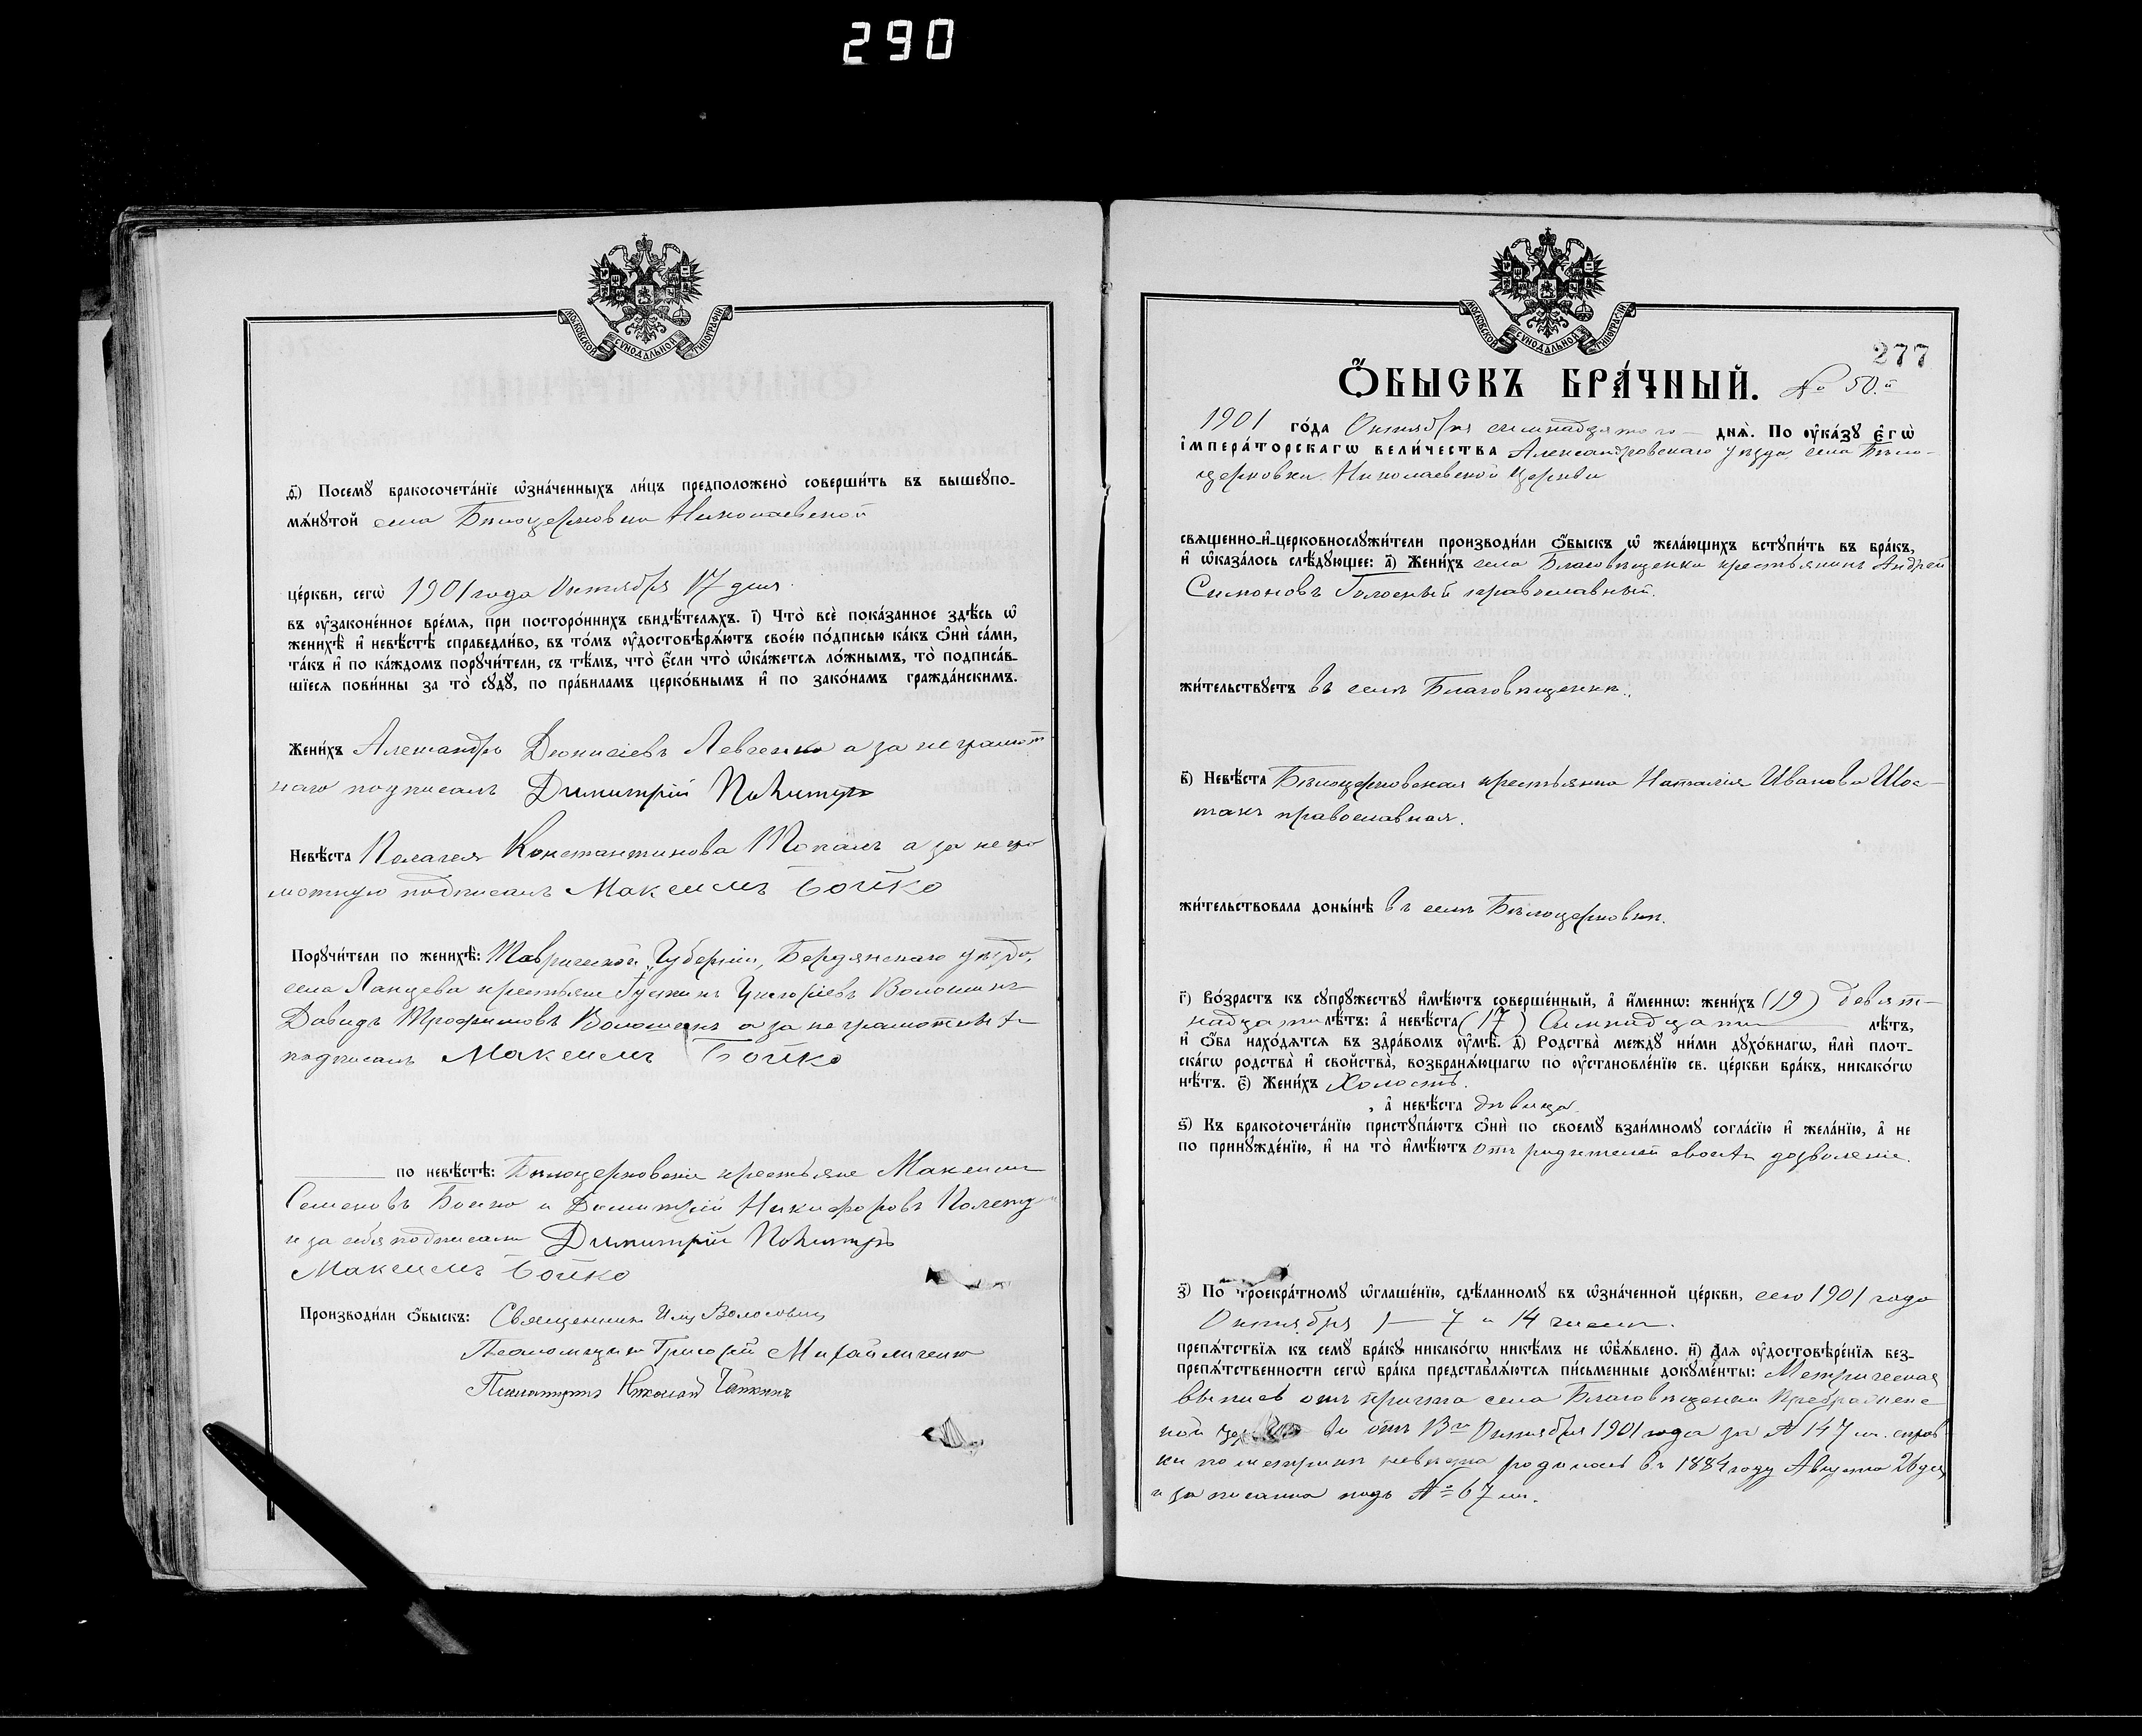 290
МОСКОВСКОЙ СУНОДАЛЬНОЙ ТИПОГРАФІИ
ѳ҃) Посемꙋ̀ бракосочета́нїе ѡ҆зна́ченныхъ ли́цъ предположено̀ соверши́ть въ вышеꙋпо-
мѧ́нꙋтой села Бѣлоцерковки Николаевской
це́ркви, сегѡ̀ 1901 года Октября 17 дня
въ ᲂу҆зако́ненное вре́мѧ, при посторо́ннихъ свидѣ́телѧхъ. і҃) Что̀ всѐ пока́занное здѣ́сь ѡ҆
женихѣ̀ и҆ невѣ́стѣ справедли́во, въ то́мъ ᲂу҆достовѣрѧ́ютъ свое́ю по́дписью ка́къ ѻ҆нѝ са́ми,
та́къ и҆ по ка́ждомъ порꙋчи́тели, съ тѣ́мъ, что̀ є҆́сли что̀ ѡ҆ка́жетсѧ ло́жнымъ, то̀ подписа́в-
шїесѧ пови́нны за то̀ сꙋдꙋ̀, по пра́виламъ церко́внымъ и҆ по зако́намъ гражда́нскимъ.
Жени́хъ Александръ Діонисіевъ Левченко а за неграмот
наго подписалъ Димитрій
Невѣ́ста Пелагея Константинова а за негра
мотную подписалъ Максимъ Бойко
Порꙋчи́тели по женихѣ̀: Таврической Губерніи, Бердянскаго уѣзда,
села Ланцева крестьяне Григоріевъ Волошинъ
Давидъ Трофимовъ Волошинъ а за неграмотныхъ
подписалъ Максимъ Бойко
по невѣ́стѣ: Бѣлоцерковскіе крестьяне Максимъ
Семеновъ Бойко и Димитрій Никифоровъ
и за себя подписали Димитрій
Максимъ Бойко
Производи́ли ѻ҆́быскъ: Священникъ
Псаломщикъ Григорій Михайличенко
Николай
МОСКОВСКОЙ СУНОДАЛЬНОЙ ТИПОГРАФІИ
277
Ѻ҆́БЫСКЪ БРА́ЧНЫЙ. № 50.й
1901 го́да Октября семнадцатаго днѧ̀. По ᲂу҆ка́зꙋ є҆гѡ̀
і҆мпера́торскагѡ вели́чества Александровскаго уѣзда, села Бѣло-
церковки Николаевской Церкви
свѧщенно-и҆-церковнослꙋжи́тели производи́ли ѻ҆́быскъ ѡ҆ жела́ющихъ встꙋпи́ть въ бра́къ,
и҆ ѡ҆каза́лось слѣ́дꙋющее: а҃) Жени́хъ села Благовѣщенки крестьянинъ Андрей
Симоновъ Голосный православный.
жи́тельствꙋетъ въ селѣ Благовѣщенкѣ.
в҃) Невѣ́ста Бѣлоцерковская крестьянка Наталія Иванова Шос-
такъ православная.
жи́тельствовала доны́нѣ въ селѣ Бѣлоцерковкѣ.
г҃) Во́зрастъ къ сꙋпрꙋ́жествꙋ и҆мѣ́ютъ соверше́нный, а҆ и҆́менно: жени́хъ (19) девят-
надцати лѣ́тъ: а҆ невѣ́ста (17) Семнадцати лѣ́тъ,
и҆ ѻ҆́ба нахо́дѧтсѧ въ здра́вомъ ᲂу҆мѣ̀. д҃) Родства̀ междꙋ̀ ни́ми дꙋхо́внагѡ, и҆лѝ плот-
ска́гѡ родства̀ и҆ сво́йства̀, возбранѧ́ющагѡ по ᲂу҆становле́нїю св. це́ркви бра́къ, никако́гѡ
нѣ́тъ. є҃) Жени́хъ Холостъ.
, а҆ невѣ́ста дѣвица.
ѕ҃) Къ бракосочета́нїю пристꙋпа́ютъ ѻ҆нѝ по своемꙋ̀ взаи́мномꙋ согла́сїю и҆ жела́нїю, а҆ не
по принꙋжде́нїю, и҆ на то̀ и҆мѣ́ютъ отъ родителей своихъ дозволеніе.
з҃) По троекра́тномꙋ ѡ҆глаше́нїю, сдѣ́ланномꙋ въ ѡ҆зна́ченной це́ркви, сего 1901 года
Октября 1– 7 и 14 чиселъ.
препѧ́тствїѧ къ семꙋ̀ бра́кꙋ никако́гѡ никѣ́мъ не ѡ҆б̾ѧ́влено. и҃) Длѧ ᲂу҆достовѣре́нїѧ без-
препѧ́тственности сегѡ̀ бра́ка представлѧ́ютсѧ пи́сьменные докꙋме́нты: Метрическая
выпись отъ причта села Благовѣщенки Преображенс
кой отъ 13го Октября 1901 года за № 147 м. справ
ки по метрикѣ невѣста родилась въ 1884 году Августа 26 дня
и записана подъ № 67 м.